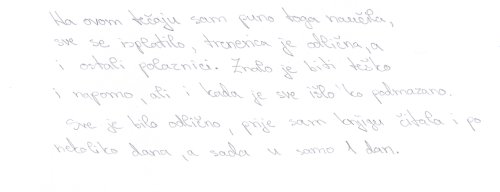 Na ovom tečaju sam puno toga naučila,
sve se isplatilo, trenerica je odlična, a
i ostali polaznici. Znalo je biti teško
i naporno, ali i kada je sve išlo 'ko podmazano.
Sve je bilo odlično, prije sam knjigu čitala i po
nekoliko dana, a sada u samo 1 dan.